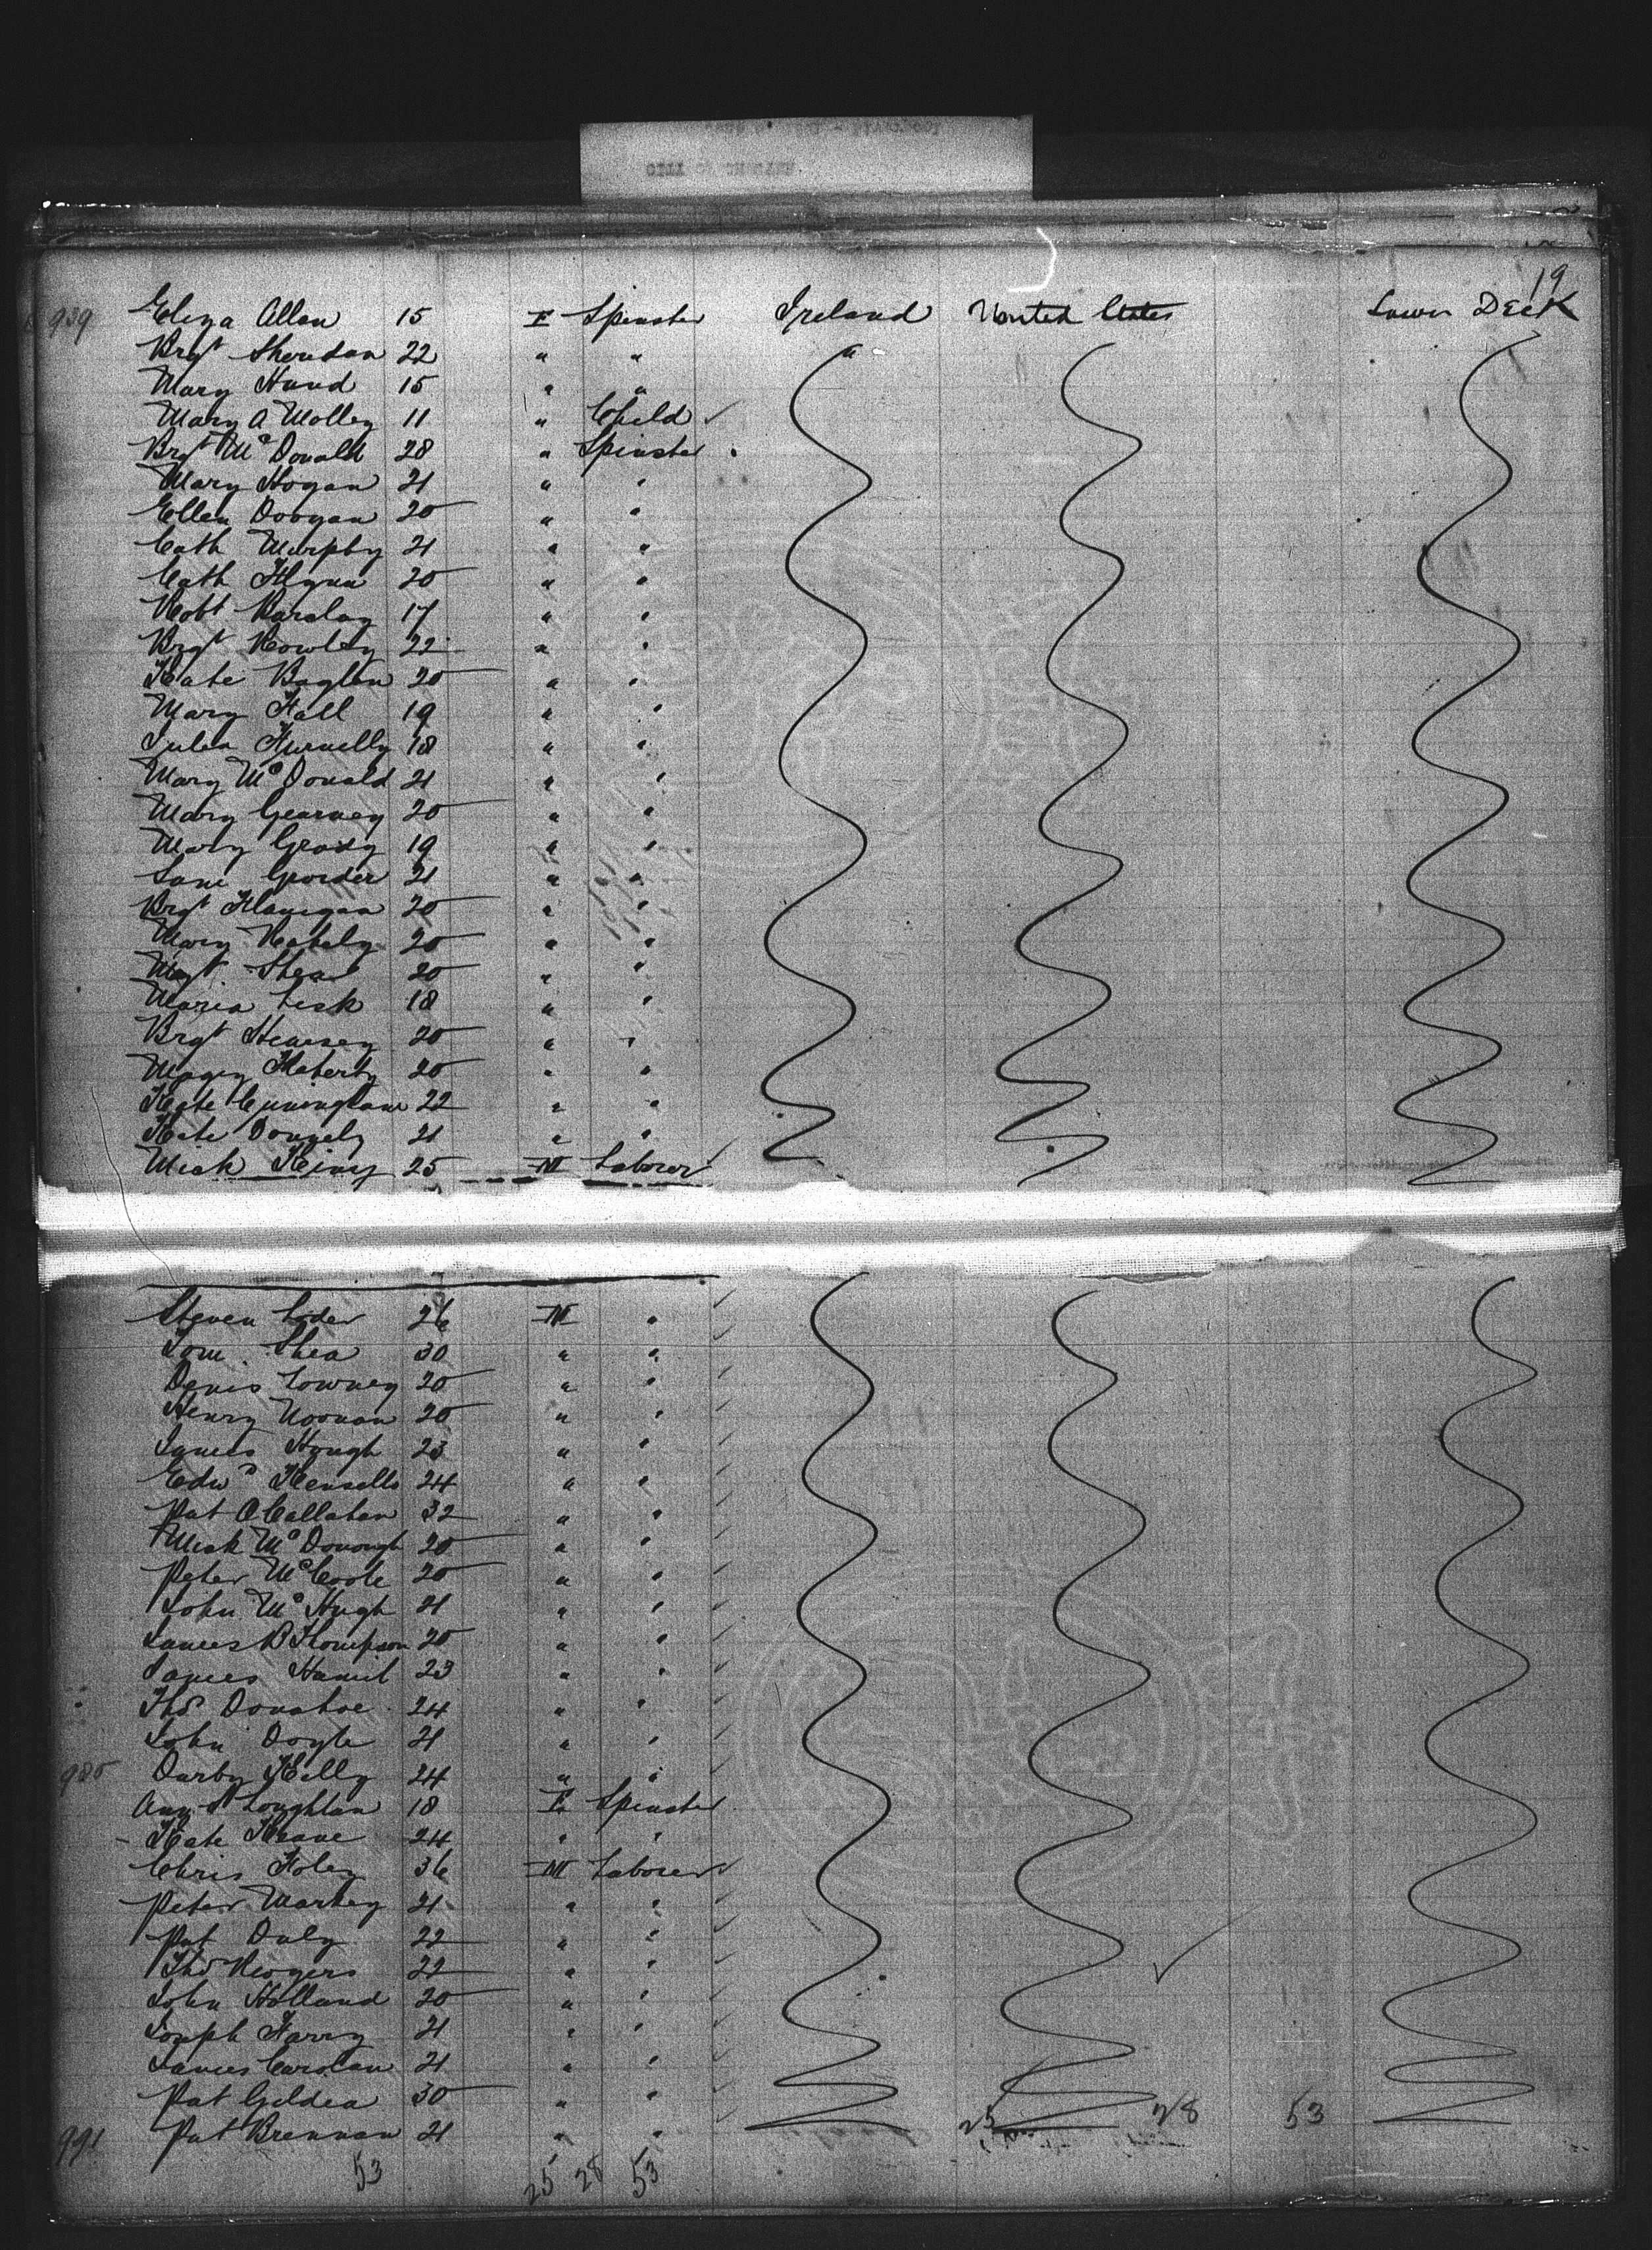 19
939 Eliza Allan 15 F Spinster Ireland United States Lower Deck
Brgt Sheridan 22 " " "
Mary Hund 15 " "
Mary A Molley 11 " Child
Brgt McDonald 28 " Spinster
Mary Hogan 21 " "
Ellen Doogan 20 " "
Cath Murphy 21 " "
Cath Flynn 20 " "
Robt Barclay 17 " "
Brgt Rowley 22 " "
Kate Boglen 20 " "
Mary Hall 19 " "
Julia 18 " "
Mary McDonald 21 " "
Mary Gearney 20 " "
Mary Grady 19 " "
Jane 21 " "
Brgt Flanigan 20 " "
Mary 20 " "
Mgt Shea 20 " "
Maria Lisk 18 " "
Brgt 20 " "
Flaherty 20 " "
Kate Cunningham 22 " "
Kate Donnely 21 " "
Mick 25 M Laborer
Steven 26 M "
Tom Shea 30 " "
Denis Lowney 20 " "
Henry Noonan 20 " "
James Hough 23 " "
Edwd 24 " "
Pat O Callahan 32 " "
Mick McDonough 20 " "
Peter McCoole 20 " "
John McHugh 21 " "
James B Thompson 20 " "
James Hamil 23 " "
Thos Donahoe 24 " "
John Doyle 21 " "
980 Darby Kelly 24 " "
Loughlan 18 F Spinster
Kate Keane 24 " "
Chris Foley 36 M Laborer
Peter Markey 21 " "
Pat Daly 22 " "
Thos Rogers 22 " "
John Holland 20 " "
Joseph Harry 21 " "
James Carolan 21 " "
Pat Gildea 30 " "
25 28 53
991 Pat Brennan 21 " "
53 25 28 53